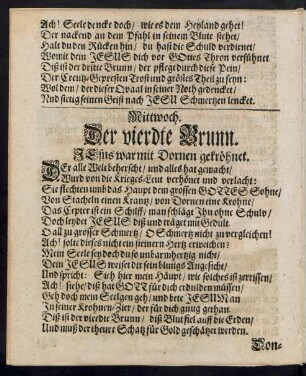 Ach! Seele dencke doch/ wie es dem Heyland gehet!
Der nackend an dem Pfahl in seinem Blute stehet/
Halt du den Rücken hin/ du hast die Schuld verdienet/
Womit dein JESUS dich vor GOttes Thron versühnet
Diß ist der dritte Brunn/ der pflege durch diese Pein/
Der Creutz-Gepresten Trost und größtes Theil zu seyn:
Wol dem/ der dieser Qvaal in seiner Noth gedencket/
Und stetig seinen Geist nach JESU Schmertzen lencket.
Mittwoch.
Der vierdte Brunn.
JEsus war mit Dornen gekröhnet.
DEr alle Welt beherscht/ und alles hat gemacht/
Wurd von die Krieges-Leut verhönet und verlacht:
Sie flechten umb das Haupt dem grossen GOTTES Sohne/
Von Stacheln einen Krantz/ von Dornen eine Krohne/
Das Cepter ist ein Schilff/ man schlägt Ihn ohne Schuld/
Doch leydet JESUS diß und träget mit Gedult.
O all zu grosser Schmertz/ O Schmertz nicht zu vergleichen!
Ach! solte dieses nicht ein steinern Hertz erweichen?
Mein Seele sey doch du so unbarmhertzig nicht/
Dein JESUS weiset dir sein blutigs Angesicht/
Und spricht: Sieh hier mein Häupt/ wie solches ist zerrissen/
Ach! siehe/ diß hat GOTT für dich erdulden müssen/
Geh doch mein Seelgen geh/ und bete JESUM an
In seiner Krohnen-Zier/ der für dich gnug gethan.
Diß ist der vierdte Brunn/ diß Blut fiel auff die Erden/
Und muß der theure Schatz für Gold geschätzet werden.
Don-